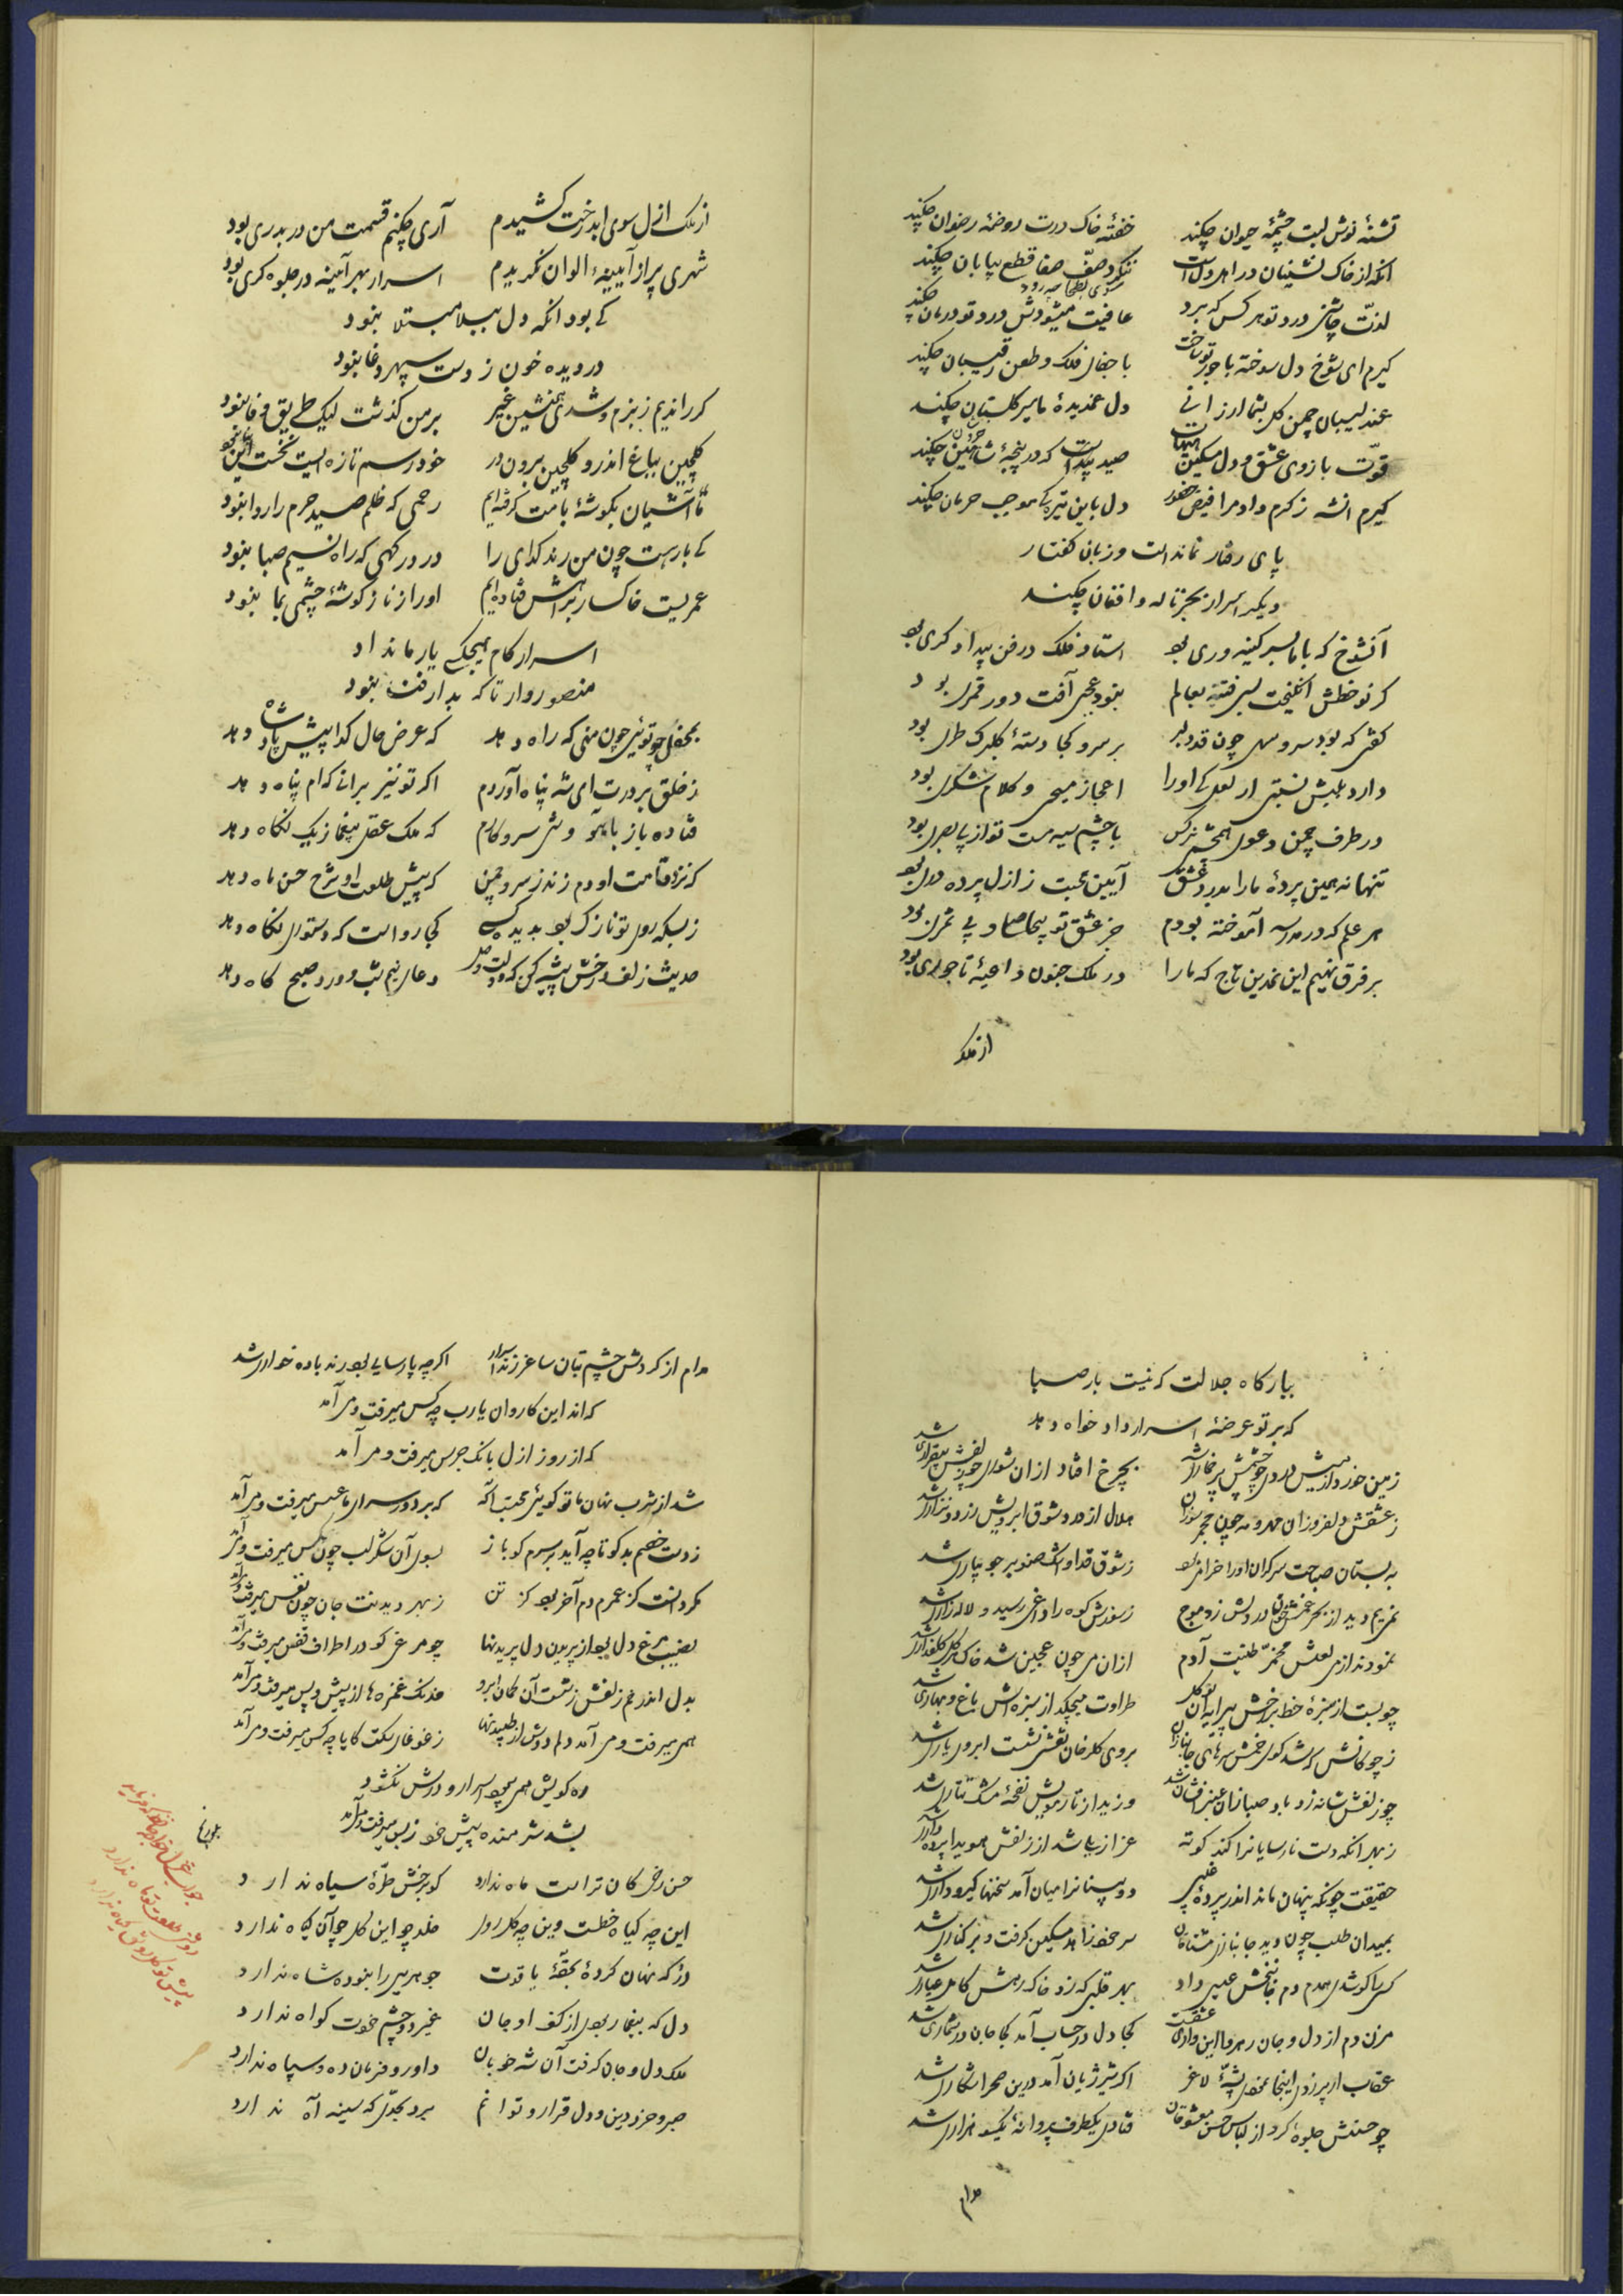 تشنهٔ نوش لبت چشمهٔ حیوان چکند خفتهٔ خاک درت روضهٔ رضوان چکند
آنکه از خاک نشینان در اهل دل است ننگرد صفّ صفا قطع بیابان چکند
سوی بطحا چه رود
لذّت چاشنی درد تو هر کس که برد عافیت میشودش درد تو درمان چکند
کیرم ای شوخ دل سوخته با جور تو ساخت با جفای فلک و طعن رقیبان چکند
عندلیبان چمن کل بشما ارزانی دل غمدیدهٔ ما سیر کلستان چکند
قوّت بازوی عشق و دل مسکین هیهات صید پیداست که در پنجهٔ شاهین چکند
کیرم آنشه ز کرم داد مرا فیض حضور دل باین تیرکی موجب حرمان چکند
پای رفتار نماندست و زبان کفتار
دیکر اسرار بجز ناله و افغان چکند
آنشوخ که با ما بسر کینه وری بود استاد فلک در فن بیدادکری بود
کر نو خطش انکیخت بسی فتنه بعالم نبود عجبی آفت دور قمری بود
کفتی که بود سرو سهی چون قد دلبر بر سرو کجا دستهٔ کلبرک طری بود
دارد بلبش نسبتی ار لعل کی او را اعجاز مسیحی و کلام شکری بود
در طرف چمن دعوی همچشمی نرکس با چشم سیه مست تو از بی بصری بود
تنها نه همین پردهٔ ما را بدرد عشق آیین محبت ز ازل پرده دری بود
هر علم که در مدرسه آموخته بودم جز عشق تو بیحاصلی و بی ثمری بود
بر فرق نهیم این نمدین تاج که ما را در ملک جنون داعیهٔ تاجوری بود
از ملک
از ملک ازل سوی ابد رخت کشیدم آری چکنم قسمت من دربدری بود
شهری پر از آیینهٔ الوان نکریدم اسرار بهر آیینه در جلوه کری بود
کی بود آنکه دل ببلا مبتلا نبود
در دیده خون ز دست سپهر دغا نبود
کر راندیم ز بزم و شدی همنشین غیر بر من کذشت لیک طریق وفا نبود
کلچین بباغ اندر و کلچین برون در خود رسم تازه ایست نخست این بنا نبود
تا آشیان بکوشهٔ بامت کرفته ایم رحمی که ظلم صید حرم را روا نبود
کی بار هست چون من رند کدای را در درکهی که راه نسیم صبا نبود
عمریست خاکسار براهش فتاده ایم او را ز ناز کوشهٔ چشمی بما نبود
اسرار کام هیچکس یار ما نداد
منصوروار تا که بدار فنا نبود
بمحفل چو توئی چون منی که راه دهد که عرض حال کدا پیش پادشاه دهد
ز خلق بر درت ای شه پناه آوردم اکر تو نیز برانی که ام پناه دهد
فتاده باز با آهو وشی سر و کارم که ملک عقل بیغما ز یک نکاه دهد
که نزد قامت او دم زند ز سرو چمن که پیش طلعت او شرح حسن ماه دهد
ز بسکه روی تو نازک بود بدیده کسی کجا رواست که دستوری نکاه دهد
حدیث زلف و رخش پیشه کن که دولت وصل دعای نیم شب و ورد صبحکاه دهد
ببارکاه جلالت که نیست بار صبا
که بر تو عرضهٔ اسرار دادخواه دهد
زمین خورد از میش دردی چو چشمش پر خماری شد بچرخ افتاد از آن شوری چو زلفش بیقراری شد
ز عشقش دلفروزان مهر و مه چون مجمر سوزان هلال از درد شوق ابرویش زرد و نزاری شد
به بستان صباحت سرکران او را خرامی بود ز شوق قد او اشک صنوبر جویباری شد
نمی یم دید از بحر غمش خون در دلش زد موج ز سوزش کوه را داغی رسید و لاله زاری شد
نمودند از می لعلش مخمّر طینت آدم از آن می چون عجین شد خاک کل کلعذاری شد
چو بست از سبزهٔ خط بر رخش پیرایه آن نوکل طراوت میچکد از سبزه اش باغ و بهاری شد
ز چوکانش که شد کوی خمش سرهای جانبازان بروی کلرخان نقشی نشست ابروی یاری شد
چو زلفش شانه زد باد صبا زان عنبر افشان شد وزید از تار مویش نفحهٔ مشک تتاری شد
ز بهر آنکه دست نارسایان را کند کوته عزازیلی شد از زلفش هویدا پرده داری شد
حقیقت چونکه پنهان ماند اندر پردهٔ غیبی دوبینان را میان آمد سخنها کیر و داری شد
بمیدان طلب چون دید جانبازی مشتاقان سر خضر زاهد مسکین کرفت و بر کناری شد
کسی را کو شدی همدم دم جانبخش عیسی داد بهر قلبی که زد خاک رهش کامل عیاری شد
مزن دم از دل و جان رهروا این وادی عشقست کجا دل در حساب آمد کجا جان در شماری شد
عقاب ار پر زدی اینجا بعضو پشهٔ لاغر اکر شیر ژیان آمد درین صحرا شکاری شد
چو حسنش جلوهٔ کرد از لباس حسن معشوقان فتادی یکطرف پروانهٔ یکسو هزاری شد
مدام
مدام از کردش چشم بتان ساغر زند اسرار اکرچه پارسایی بود رند باده خواری شد
که اند این کاروان یا رب چه کس میرفت و می آمد
که از روز ازل بانک جرس میرفت و می آمد
شد از شرب نهان ما تو کوئی محتسب آکه که بر دور سرای ما عسس میرفت و می آمد
ز دست خصم بدکو تا چه آید بر سرم کو باز بسوی آن شکر لب چون مکس میرفت و می آمد
مکر دانست کز عمرم دم آخر بود کز تن ز بهر دیدنت جان چون نفس میرفت و می آمد
نصیب مرغ دل بود از پریدن دل پریدنها چو مرغی کو در اطراف قفس میرفت و می آمد
بدل اندر خم زلفش ز شست آن کمان ابرو خدنک غمزه ها از پیش و پس میرفت و می آمد
همی میرفت و می آمد دلم دوش از طپیدنها ز غوغای سکت کایا چه کس میرفت و می آمد
ره کویش همی پوید اسرار و درش نکشود
بشد شرمنده پیش خود ز بس میرفت و می آمد
حسن رخی کان تراست ماه ندارد کو برخش طرّهٔ سیاه ندارد
این چه کیاه خطست وین چه کل روی خلد چو این کل چو آن کیاه ندارد
دزکه نهان کردهٔ بحقّهٔ یاقوت جوهریی را نبوده شاه ندارد
دل که بیغما ربودی از کف او جان غیر دو چشم خوت کواه ندارد
ملک دل و جان کرفت آن شه خوبان داور و فرمان ده و سپاه ندارد
صبر و خرد دین و دل قرار و توانم برد بجدّی که سینه آه ندارد